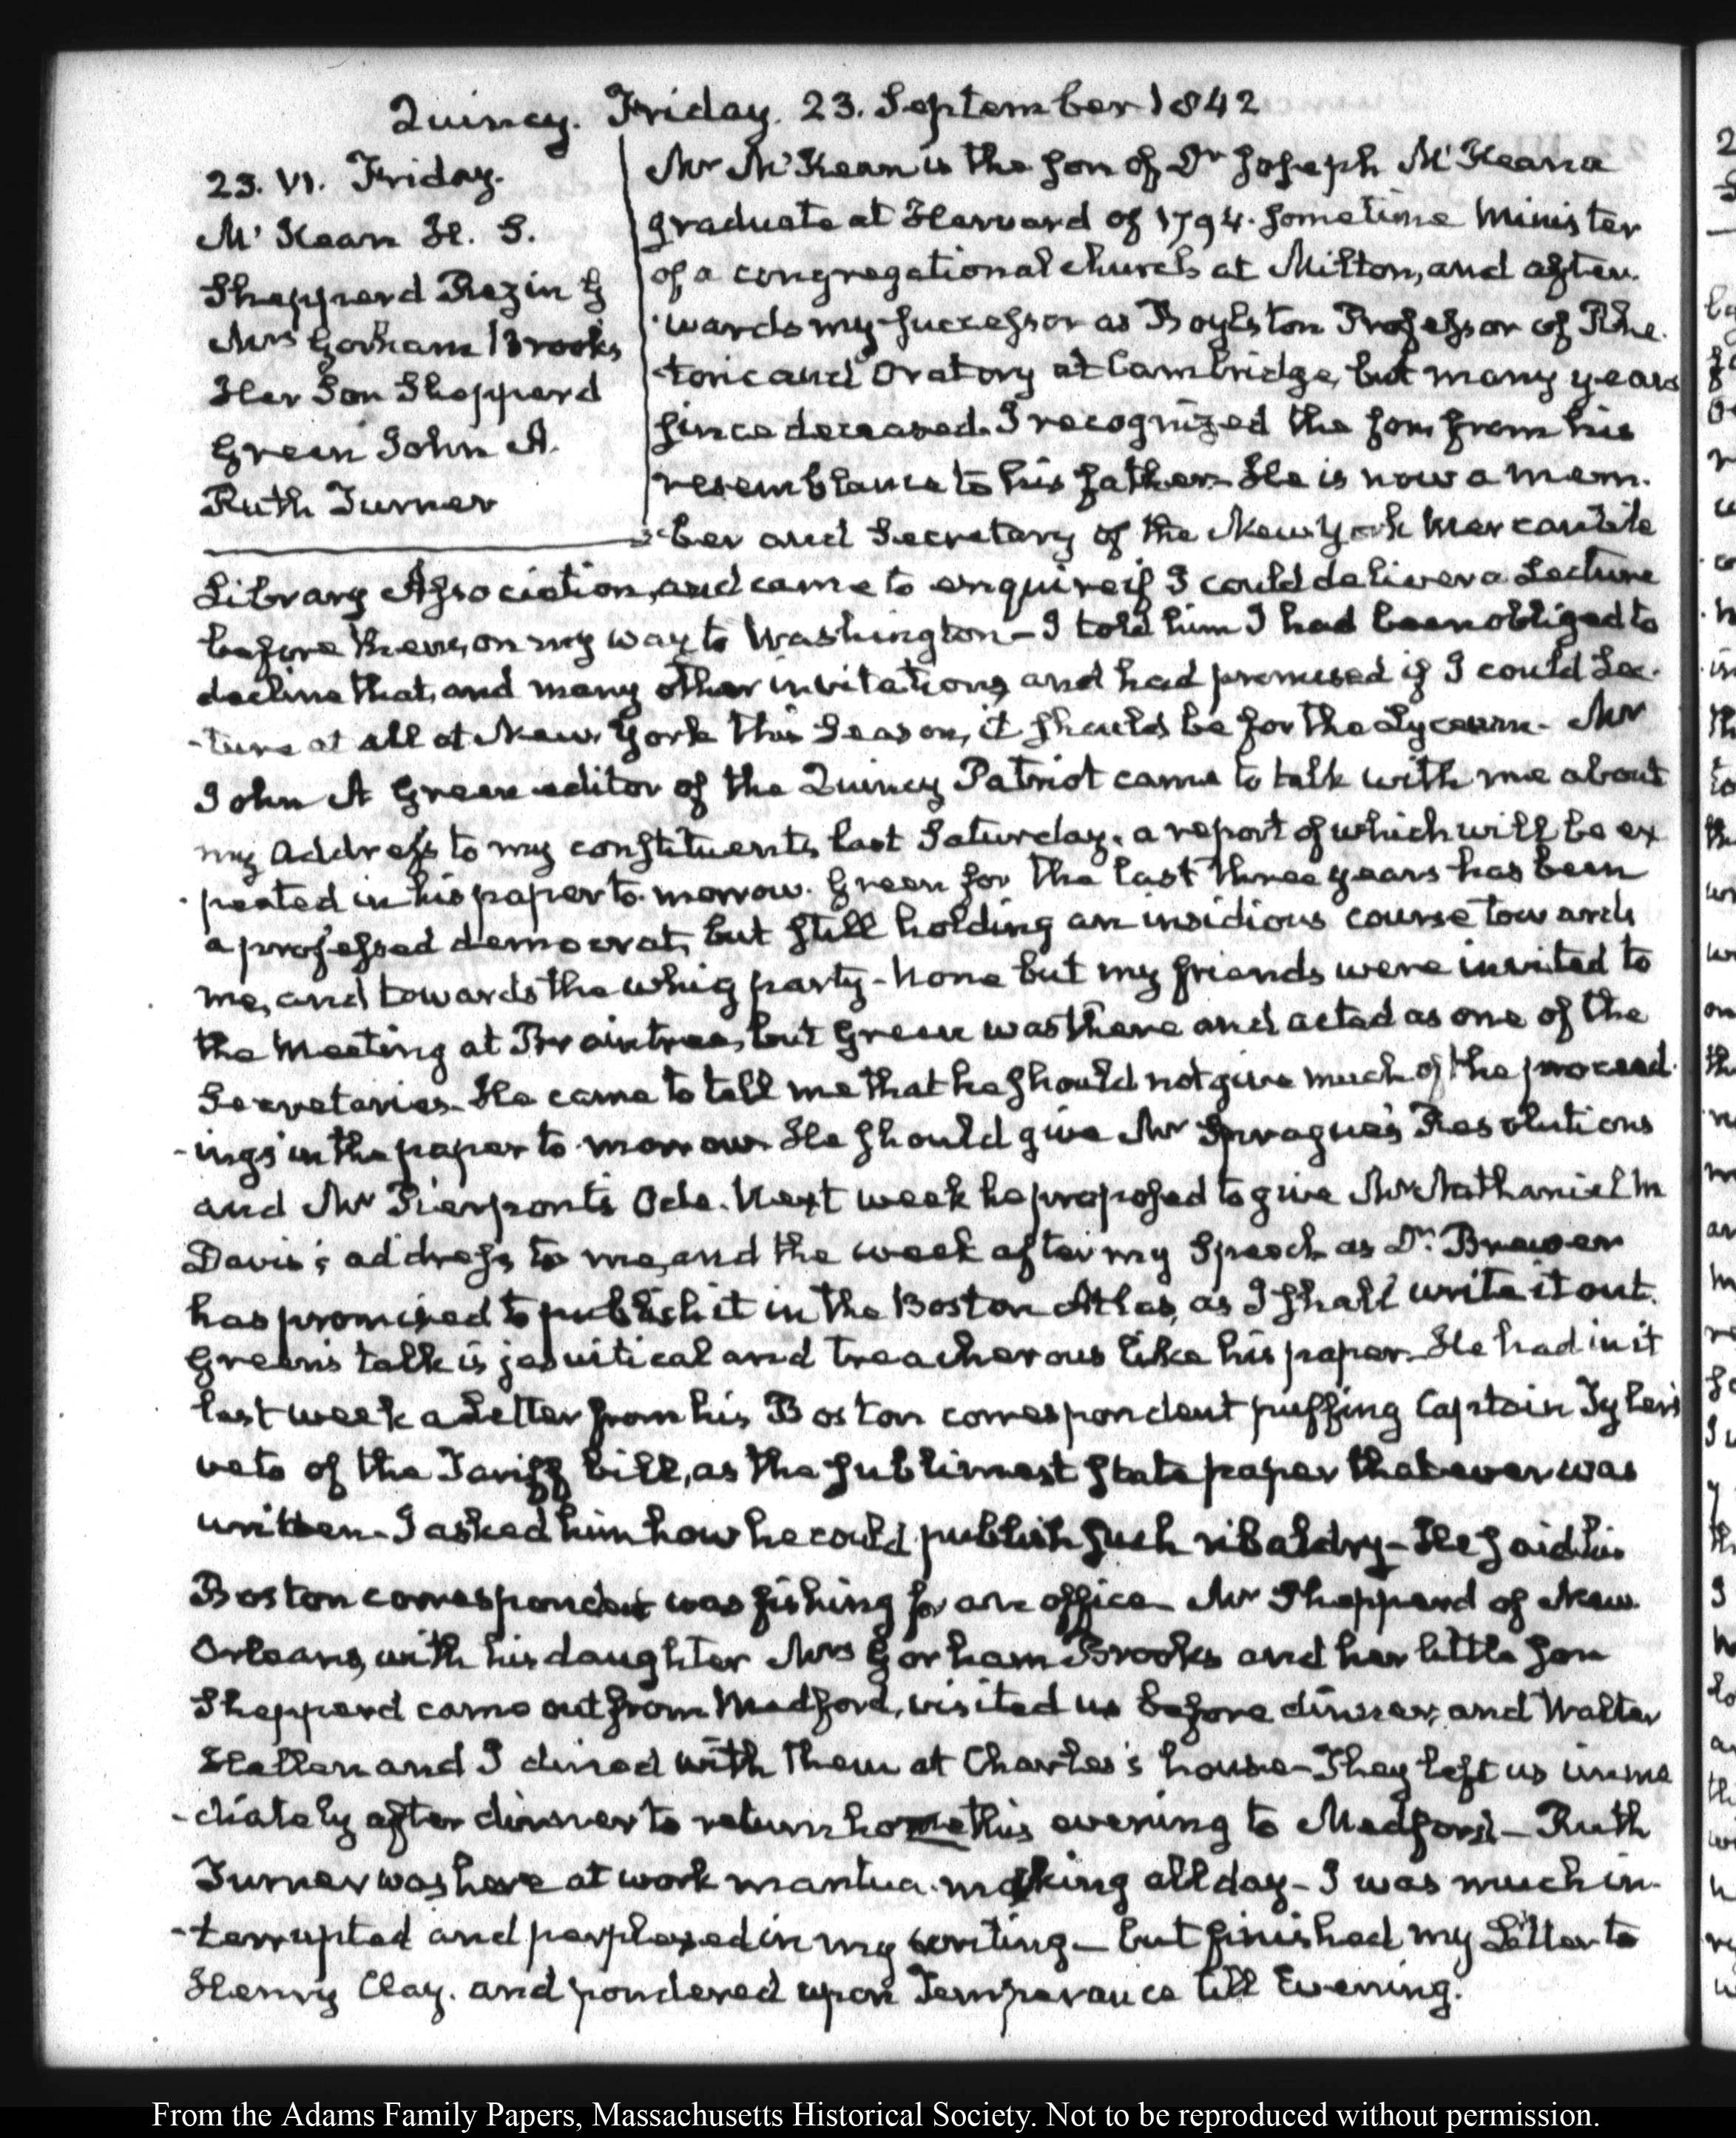 Quincy. Friday. 23. September 1842
23. VI. Friday.
McKean H. S.
Shepperd Rezin G
Mrs Gorham Brooks
Her Son Shepperd
Green John A.
Ruth Turner
Mr McKean is the son of Dr Joseph McKean a
graduate at Harvard of 1794. sometime Minister
of a congregational church at Milton, and after-
-wards my successor as Boylston Professor of Rhe-
-toric and Oratory at Cambridge, but many years
since deceased. I recognized the son from his
resemblance to his father. He is now a mem-
-ber and Secretary of the New-York Mercantile
Library Association, and came to enquire if I could deliver a Lecture
before them, on my way to Washington – I told him I had been obliged to
decline that, and many other invitations, and had promised if I could Lec-
-ture at all at New York this Season, it should be for the Lyceum – Mr
John A Green editor of the Quincy Patriot came to talk with me about
my Address to my constituents last Saturday, a report of which will be ex
-pected in his paper to-morrow. Green for the last three years has been
a professed democrat, but still holding an insidious course towards
me, and towards the whig party – None but my friends were invited to
the Meeting at Braintree, but Green was there and acted as one of the
Secretaries. He came to tell me that he should not give much of the proceed-
-ings in the paper to-morrow. He should give Mr Sprague's Resolutions
and Mr Pierpont's Ode. Next week he proposed to give Mr Nathaniel M
Davis's address to me, and the week after my Speech as Dr. Brewer
has promised to publish it in the Boston Atlas, as I shall write it out.
Green's talk is jesuitical and treacherous like his paper. He had in it
last week a Letter from his Boston correspondent puffing Captain Tyler's
veto of the Tariff bill, as the sublimest state paper that ever was
written – I asked him how he could publish such ribaldry – He said his
Boston correspondent was fishing for an office – Mr Shepperd of New-
Orleans, with his daughter Mrs Gorham Brooks and her little son
Shepperd came out from Medford, visited us before dinner, and Walter
Hellen and I dined with them at Charles's house – They left us imme
-diately after dinner to return home this evening to Medford – Ruth
Turner was here at work mantua-making all day – I was much in-
-terrupted and perplexed in my writing – but finished my Letter to
Henry Clay. and pondered upon Temperance till Evening.
From the Adams Family Papers, Massachusetts Historical Society. Not to be reproduced without permission.